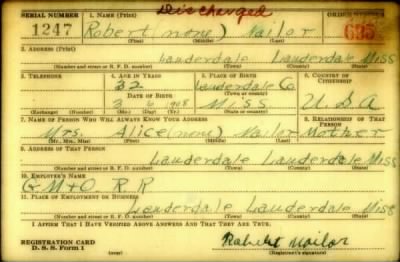 Discharged
SERIAL NUMBER 1. NAME (Print) ORDER NUMBER
1247 Robert (none) Nailor 695
(First) (Middle) (Last)
2. ADDRESS (Print)
Lauderdale Lauderdale Miss
(Number and street or R. F. D. number) (Town) (County) (State)
3. TELEPHONE 4. AGE IN YEARS 5. PLACE OF BIRTH 6. COUNTRY OF CITIZENSHIP
32 Lauderdale Co.
DATE OF BIRTH (Town or county)
3 6 908 Miss U.S.A
(Exchange) (Number) (Mo.) (Day) (Yr.) (State or country)
7. NAME OF PERSON WHO WILL ALWAYS KNOW YOUR ADDRESS 8. RELATIONSHIP OF THAT PERSON
Mrs. Alice (none) Nailor Mother
(Mr., Mrs., Miss) (First) (Middle) (Last)
9. ADDRESS OF THAT PERSON
Lauderdale Lauderdale Miss
(Number and street or R. F. D. number) (Town) (County) (State)
10. EMPLOYER'S NAME
G.M.+O. R.R
11. PLACE OF EMPLOYMENT OR BUSINESS
Lauderdale Lauderdale Miss
(Number and street or R. F. D. number) (Town) (County) (State)
I AFFIRM THAT I HAVE VERIFIED ABOVE ANSWERS AND THAT THEY ARE TRUE.
REGISTRATION CARD
D. S. S. Form 1
Robert Nailor
(Registrant's signature)